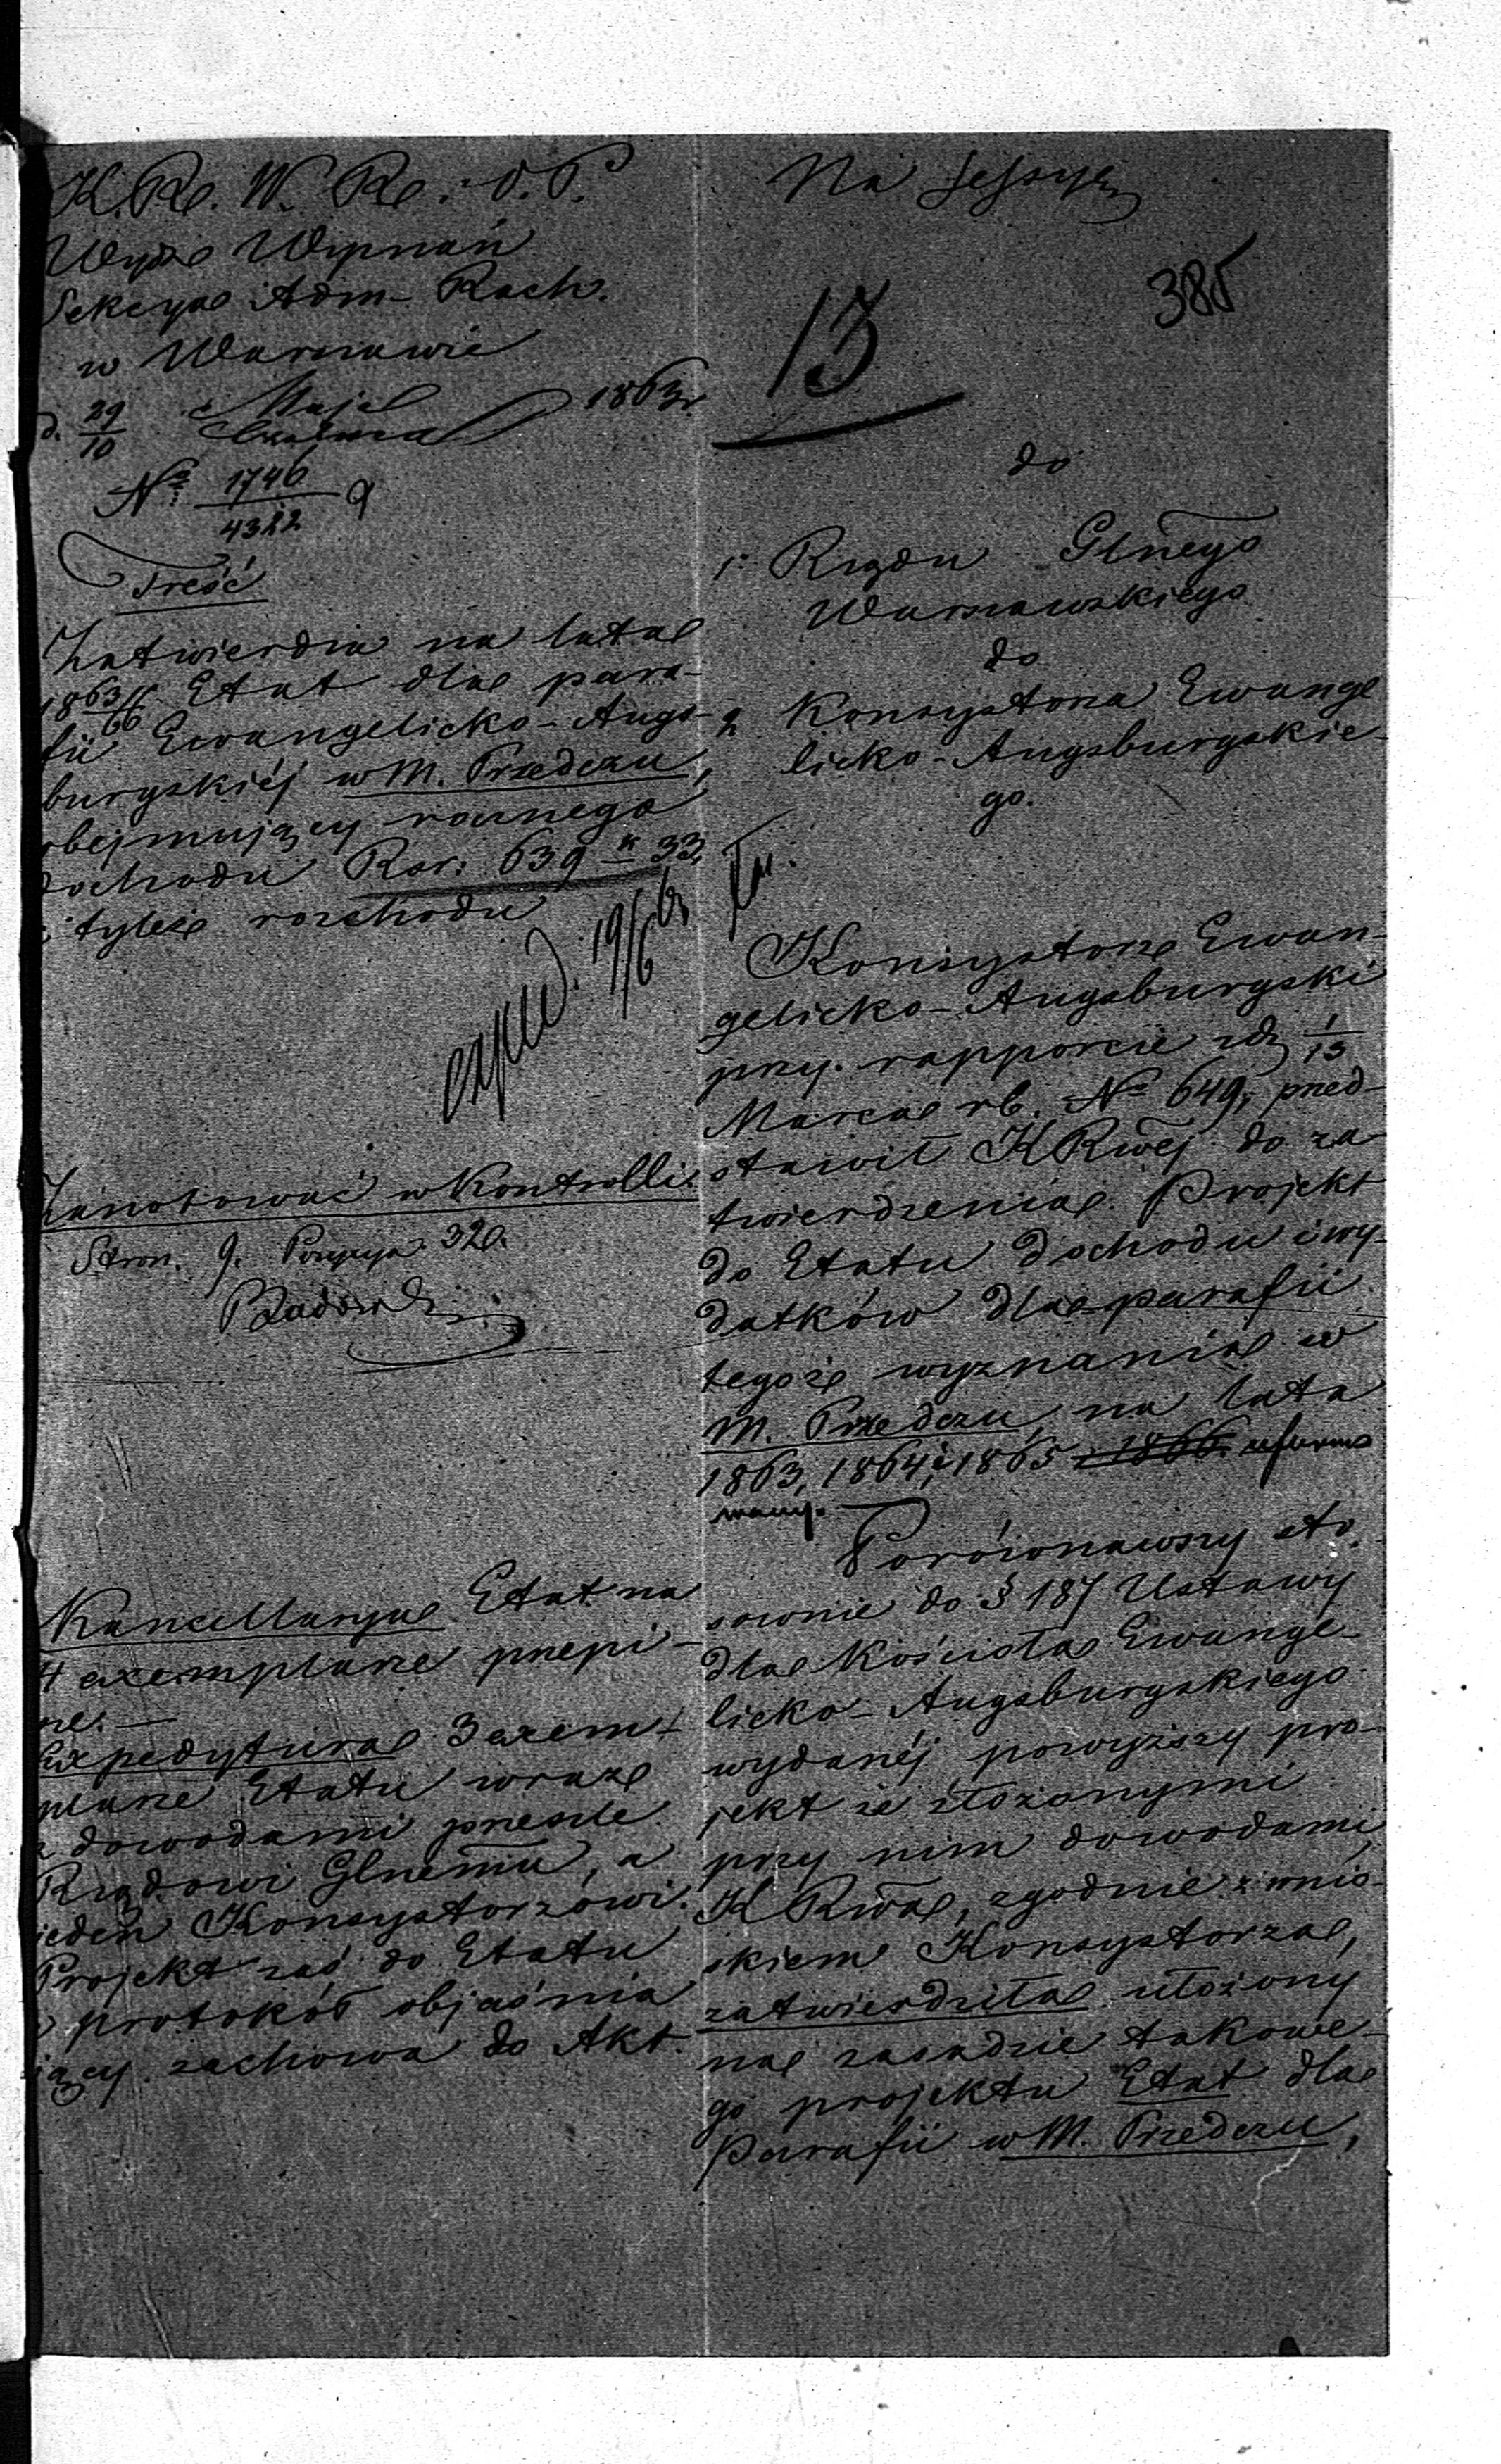 K. R. W. R. i O. P.
Wydz. Wyznań
Sekcya Adm- Rach.
w Warszawie
d. 29/10 Maja/Czerwca 1863 r.
No 1746/4322
Treść
Zatwierdza na lata
1863/66 Etat dla para-
fii Ewangelicko-Augs-
burgskiéj w M. Przedczu,
obejmujący rocznego
dochodu Rsr: 639 k 33,
i tyleż rozchodu
exped. 19/6 63
Zanotować w Kontrolli.
Stron. 9. Pozycya 32
Kancellarya Etat na
4 exemplarze przepi-
sze. —
Expedytura 3 exem-
plarze Etatu wraz
z dowodami prześle
Rządowi Glnemu, a
jeden Konsystorzowi.
Projekt zaś do Etatu
i protokół objaśnia
jący zachowa do Akt.
Na sessyę
385
13
do
1. Rządu Glnego
Warszawskiego
do
2 Konsystorza Ewange
licko-Augsburgskie-
go.
Konsystorz Ewan-
gelicko-Augsburgski
przy rapporcie z d. 1/13
Marca rb. No 649, przed-
stawił KRwéj do za-
twierdzenia Projekt
do Etatu dochodu i wy-
datków dla parafii
tegoż wyznania w
M. Przedczu, na lata
1863, 1864 i 1865 i 1866 uformo
wany.
Porównawszy sto-
sownie do § 187 Ustawy
dla Kościoła Ewange-
licko-Augsburgskiego
wydanéj powyższy pro-
jekt ze złożonymi
przy nim dowodami,
K Rwa, zgodnie z wnio-
skiem Konsystorza,
zatwierdziła ułożony
na zasadzie takowe-
go projektu Etat dla
Parafii w M. Przedczu,